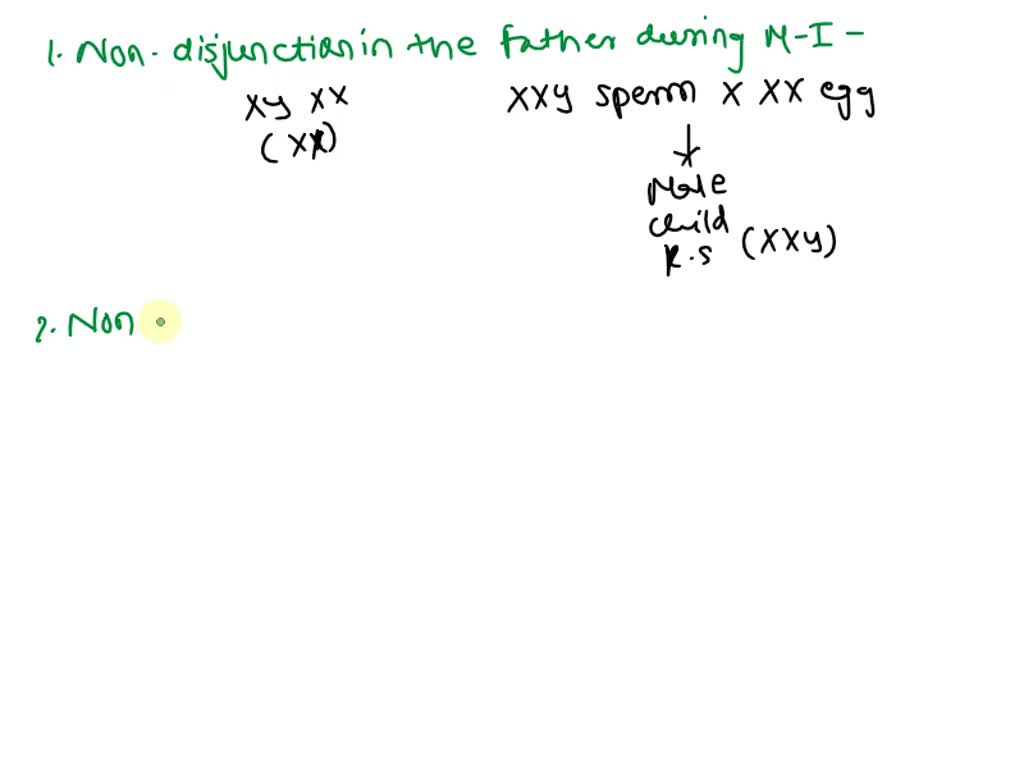 1. Non-disjunction in the father during M-I -
xy xx XXY sperm X XX egg
(XX)
Male
child
K.S (XXY)
2. Non